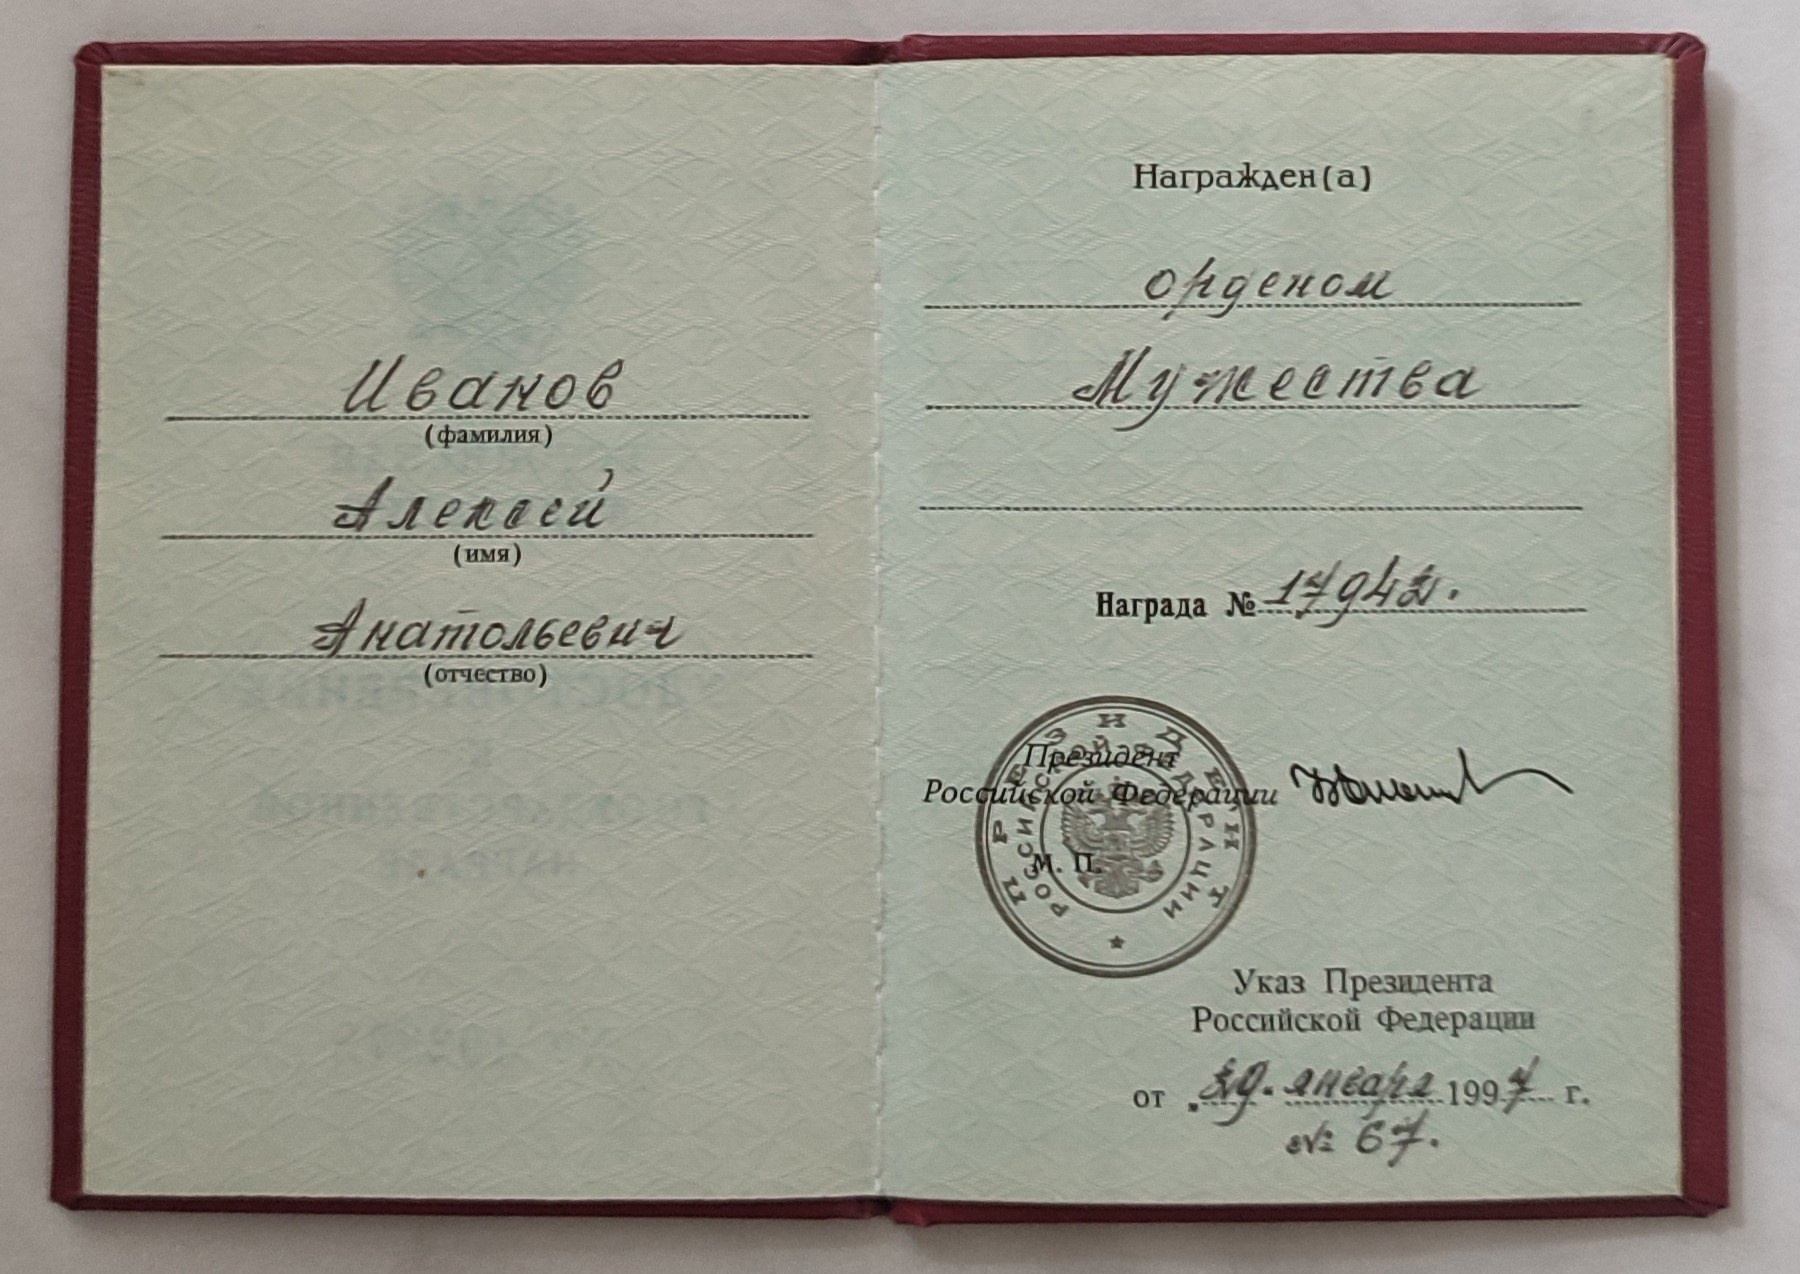 Иванов
(фамилия)
Алексей
(имя)
Анатольевич
(отчество)
Награжден(а)
орденом
Мужества
Награда № 17942.
Президент
Российской Федерации
М. П.
ПРЕЗИДЕНТ
РОССИЙСКОЙ ФЕДЕРАЦИИ
Указ Президента
Российской Федерации
от „29. января 1997 г.
№ 67.